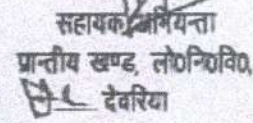 सहायक अभियन्ता
प्रान्तीय खण्ड, लो०नि०वि०,
देवरिया